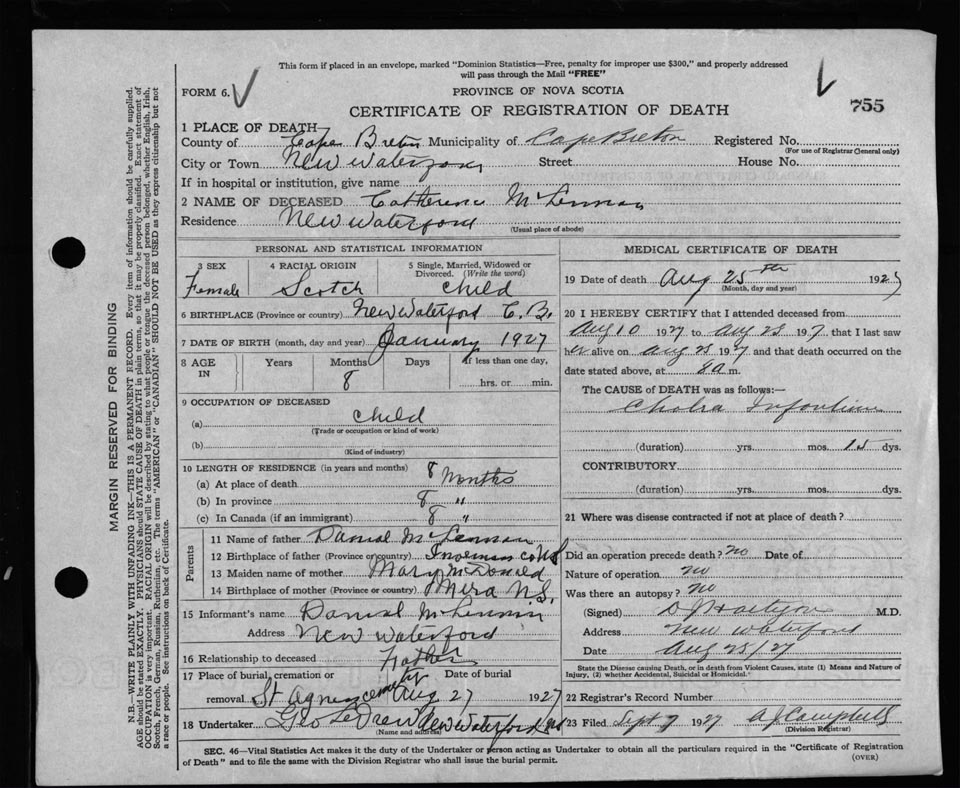 This form if placed in an envelope, marked "Dominion Statistics—Free, penalty for improper use $300," and properly addressed
will pass through the Mail "FREE"
FORM 6.
PROVINCE OF NOVA SCOTIA
CERTIFICATE OF REGISTRATION OF DEATH
755
1 PLACE OF DEATH—
County of Cape Breton Municipality of Cape Breton Registered No.
(For use of Registrar General only)
City or Town New Waterford Street House No.
If in hospital or institution, give name
2 NAME OF DECEASED Catherine McLennan
Residence New Waterford
(Usual place of abode)
PERSONAL AND STATISTICAL INFORMATION
3 SEX 4 RACIAL ORIGIN 5 Single, Married, Widowed or Divorced. (Write the word)
Female Scotch child
6 BIRTHPLACE (Province or country) New Waterford C. B.
7 DATE OF BIRTH (month, day and year) January 1927
8 AGE IN Years Months Days If less than one day,
8 hrs. or min.
9 OCCUPATION OF DECEASED
(a) child
(Trade or occupation or kind of work)
(b)
(Kind of industry)
10 LENGTH OF RESIDENCE (in years and months)
(a) At place of death 8 Months
(b) In province 8 "
(c) In Canada (if an immigrant) 8 "
Parents
11 Name of father Danial McLennan
12 Birthplace of father (Province or country) Inverness co NS
13 Maiden name of mother Mary McDonald
14 Birthplace of mother (Province or country) Mira N S.
15 Informant's name Danial McLennan
Address New Waterford
16 Relationship to deceased Father
17 Place of burial, cremation or removal Date of burial
St Agnes cemetry Aug 27 1927
18 Undertaker Geo LeDrew New Waterford
(Name and address)
MEDICAL CERTIFICATE OF DEATH
19 Date of death Aug 25th 1927
(Month, day and year)
20 I HEREBY CERTIFY that I attended deceased from
Aug 10 1927 to Aug 25 1927, that I last saw
her alive on Aug 25 1927 and that death occurred on the
date stated above, at 8 a m.
The CAUSE of DEATH was as follows:—
Cholra Infantium
(duration) yrs. mos. 15 dys.
CONTRIBUTORY
(duration) yrs. mos. dys.
21 Where was disease contracted if not at place of death?
Did an operation precede death? no Date of
Nature of operation no
Was there an autopsy? no
(Signed) M.D.
Address New Waterford
Date Aug 25/27
State the Disease causing Death, or in death from Violent Causes, state (1) Means and Nature of
Injury, (2) whether Accidental, Suicidal or Homicidal.
22 Registrar's Record Number
23 Filed Sept 7 1927 A J Campbell
(Division Registrar)
SEC. 46—Vital Statistics Act makes it the duty of the Undertaker or person acting as Undertaker to obtain all the particulars required in the "Certificate of Registration
of Death" and to file the same with the Division Registrar who shall issue the burial permit.
(OVER)
MARGIN RESERVED FOR BINDING
N.B.—WRITE PLAINLY WITH UNFADING INK—THIS IS A PERMANENT RECORD. Every item of information should be carefully supplied.
AGE should be stated EXACTLY. PHYSICIANS should STATE CAUSE OF DEATH in plain terms, so that it may be properly classified. Exact statement of
OCCUPATION is very important. RACIAL ORIGIN will be described by stating to what people or tongue the deceased person belonged, whether English, Irish,
Scotch, French, German, Russian, Ruthenian, etc. The terms "AMERICAN" or "CANADIAN" SHOULD NOT BE USED as they express citizenship but not
a race or people. See instructions on back of Certificate.